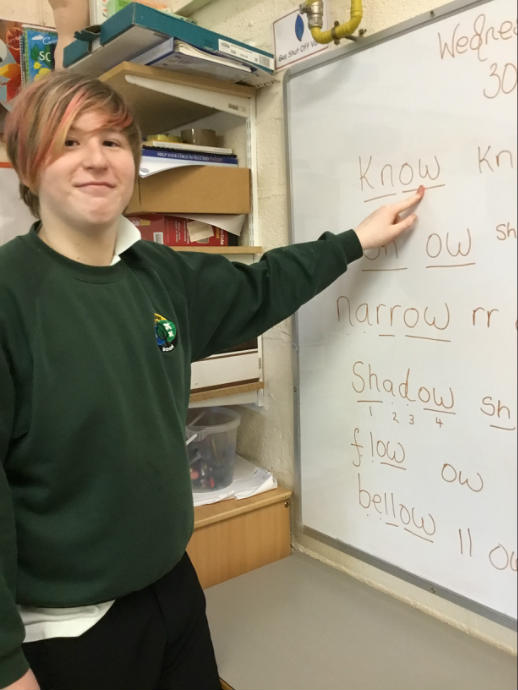 Gas Shut Off
Wedne
30
Know Kn
ow sh
narrow rr
Shadow sh
1 2 3 4
flow ow
bellow ll ow